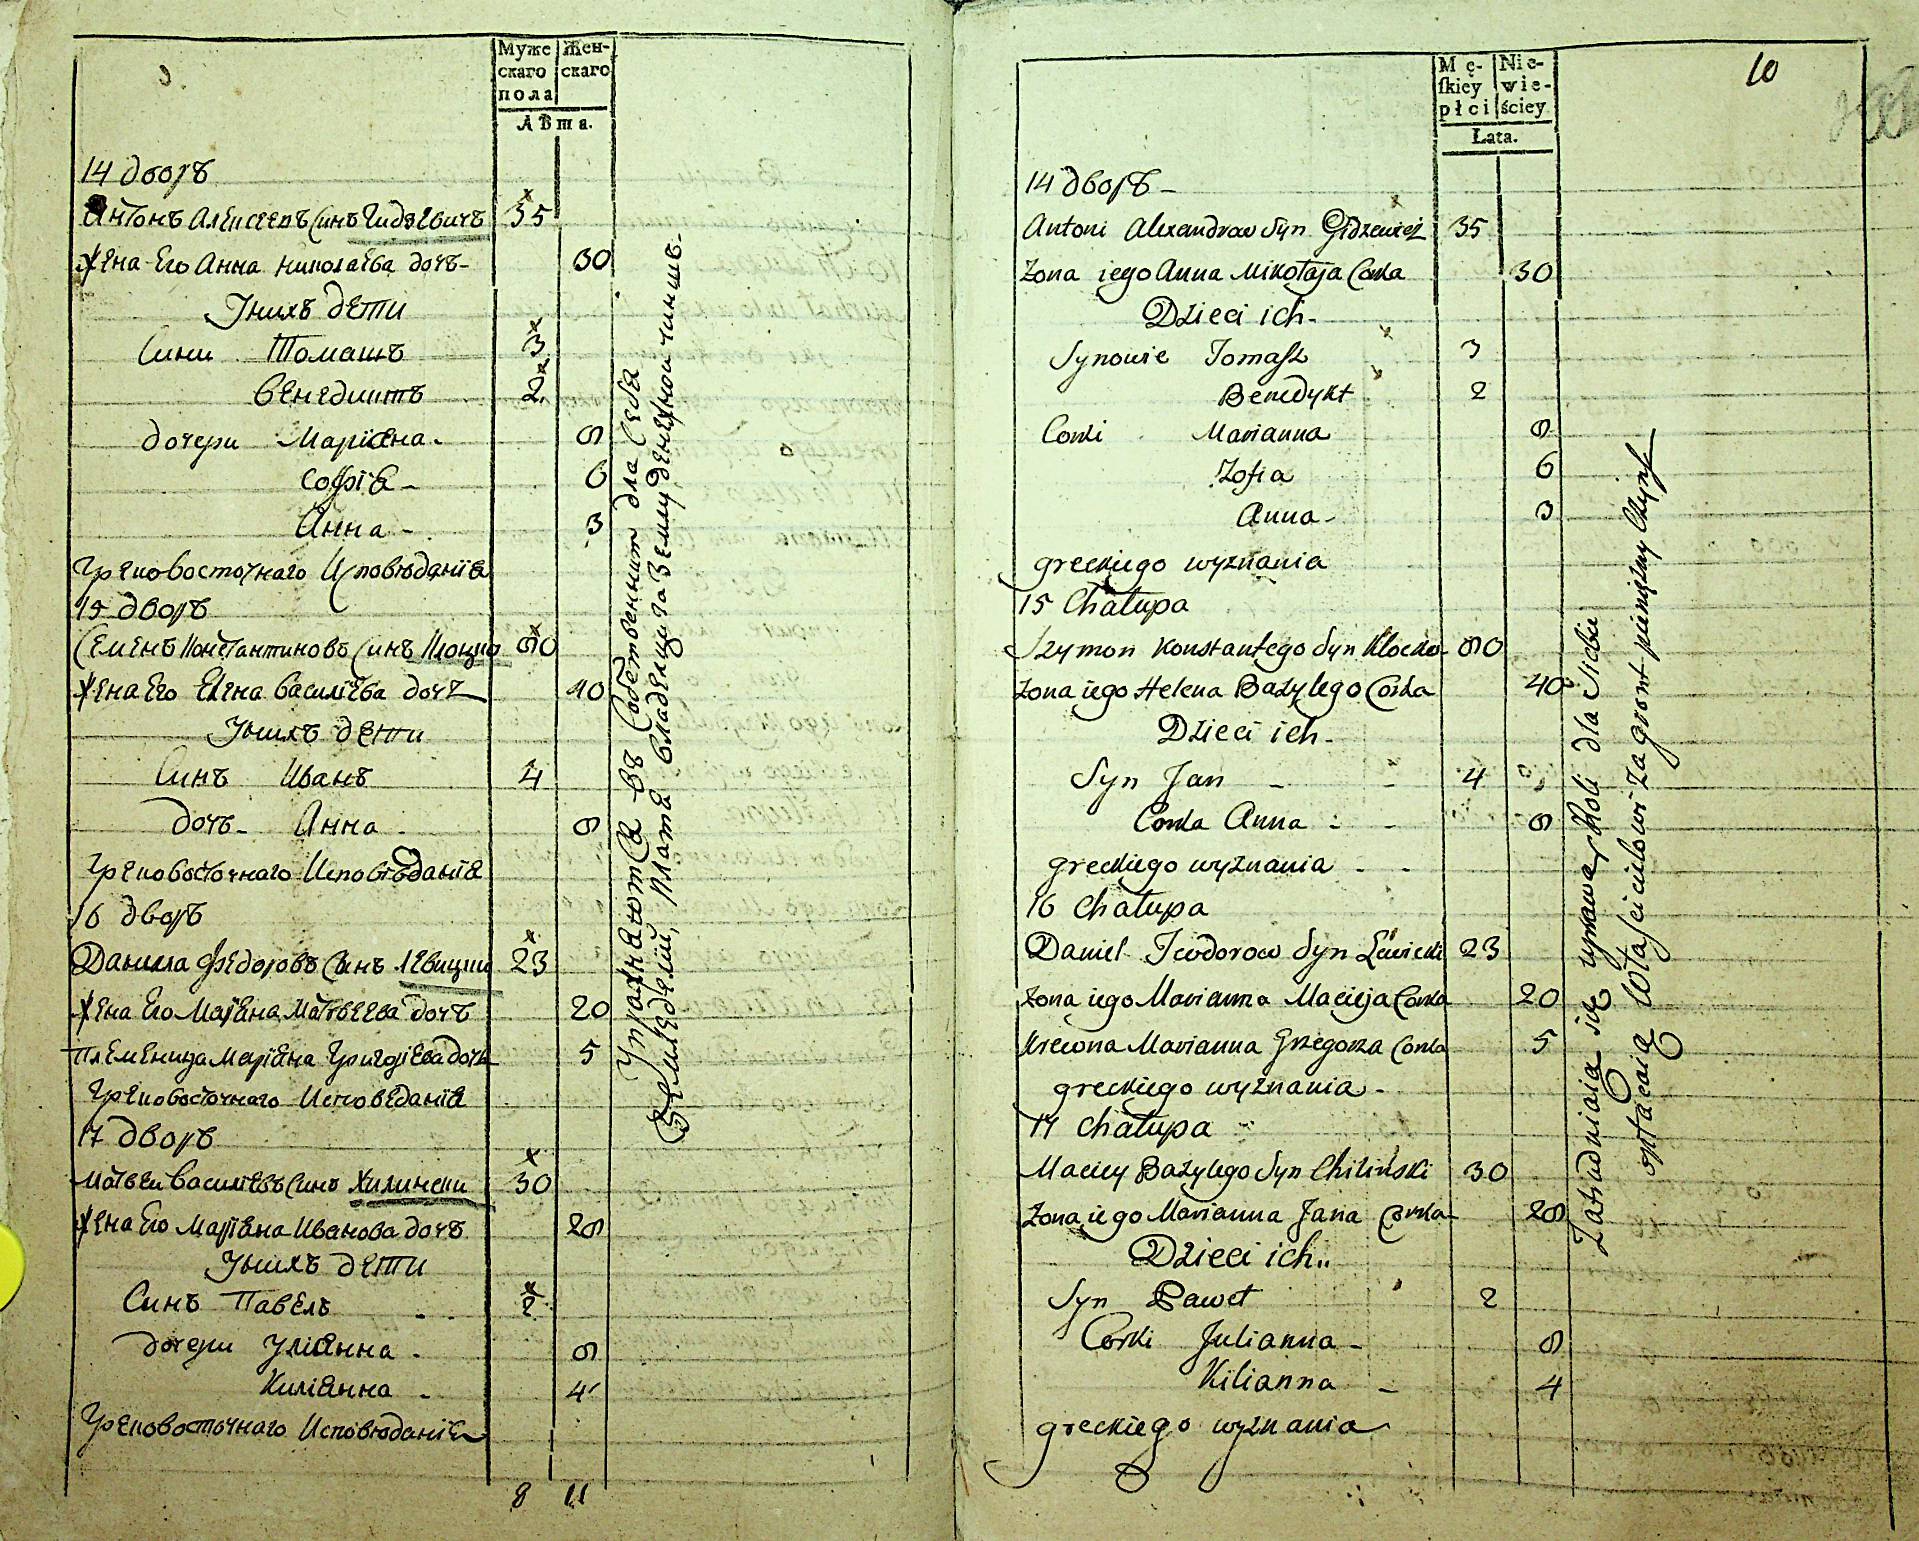 Муже Жен-
скаго скаго
пола
Лѣта.
14 дворъ
Антонъ Алексеевъ Синъ Гидзевичъ 35
Жена Его Анна Николаева дочь - 30
У нихъ дети
Сини Томашъ 3
Венедиктъ 2
дочери Маріяна - 9
Софія - 6
Анна - 3
Грековосточнаго Исповѣданія
15 дворъ
Семенъ Константиновъ Синъ Клоцко 90
Жена Его Елена Василіева дочь 40
У нихъ дети
Синъ Иванъ 4
дочь - Анна 9
Грековосточнаго Исповѣданія
16 дворъ
Данила Федоровъ Синъ Левицки 23
Жена Его Маріяна Матвеева дочь 20
Племеница Маріяна Григоріева дочь 5
Грековосточнаго Исповѣданія
17 дворъ
Матвеи Василіевъ Синъ Хилински 30
Жена Его Маріяна Иванова дочь 29
У нихъ дети
Синъ Павелъ 2
дочери Уліянна - 9
Киліянна - 4
Грековосточнаго Исповѣданія
8 11
Упражняются въ Собственним для Себя
Земледелии, платя владелцу за Землю денежной чиншъ.
10
Mę- Nie-
ſkiey wie-
płci ściey
Lata.
14 дворъ -
Antoni Alexandrow Syn Gidzewicz 35
Zona iego Anna Mikołaja Corka 30
Dzieci ich -
Synowie Tomasz 3
Benedykt 2
Corki Marianna 9
Zofia 6
Anna - 3
greckiego wyznania
15 Chałupa
Szymon Konstantego Syn Klocko - 90
Zona iego Helena Bazylego Corka 40
Dzieci ich -
Syn Jan - 4
Corka Anna 9
greckiego wyznania - -
16 Chałupa
Daniel Teodorow Syn Lewicki 23
Zona iego Marianna Macieja Corka 20
Krewna Marianna Grzegorza Corka 5
greckiego wyznania -
17 Chałupa -
Maciey Bazylego Syn Chiliński 30
Zona iego Marianna Jana Corka - 29
Dzieci ich..
Syn Paweł 2
Corki Julianna - 9
Kilianna - 4
greckiego wyznania
Zatrudniaią się uprawą Roli dla Siebie
opłacaią Właścicielowi za gront pieniężny Czynsz